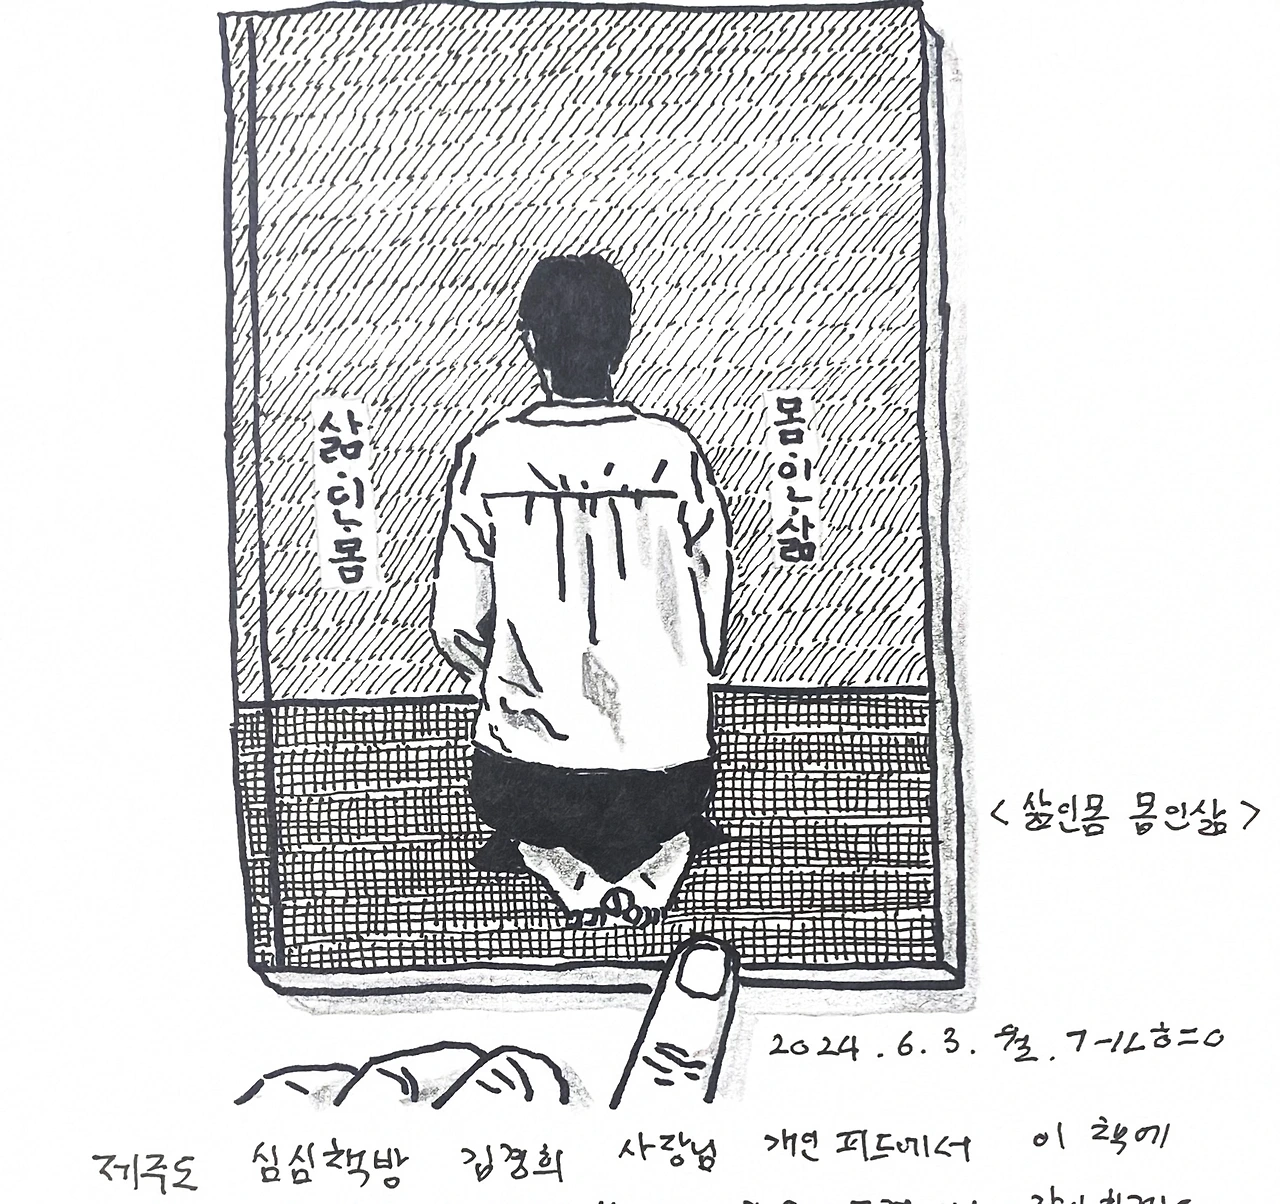 삶·인·몸
몸·인·삶
< 삶인몸 몸인삶 >
2024. 6. 3. 월.
제주도 심심책방 김경희 사장님 개인 피드에서 이 책에